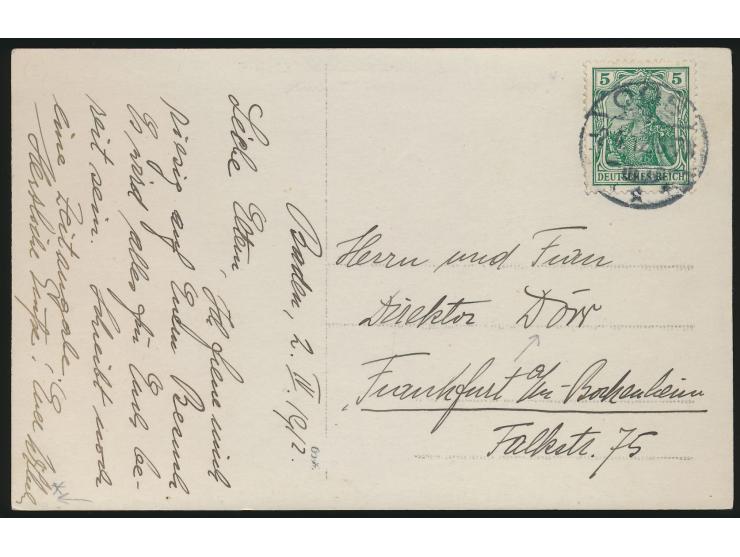 Baden, 2. IV. 1912.
Liebe Eltern, Ich freue mich
riesig auf Euren Besuch
Es wird alles für Euch be-
reit sein. Schreibt noch
eine Zeitangabe.
Herzliche Grüße! Euer
5 5
DEUTSCHES REICH
Herrn und Frau
Direktor Dörr
Frankfurt a/M-Bockenheim
Falkstr. 75